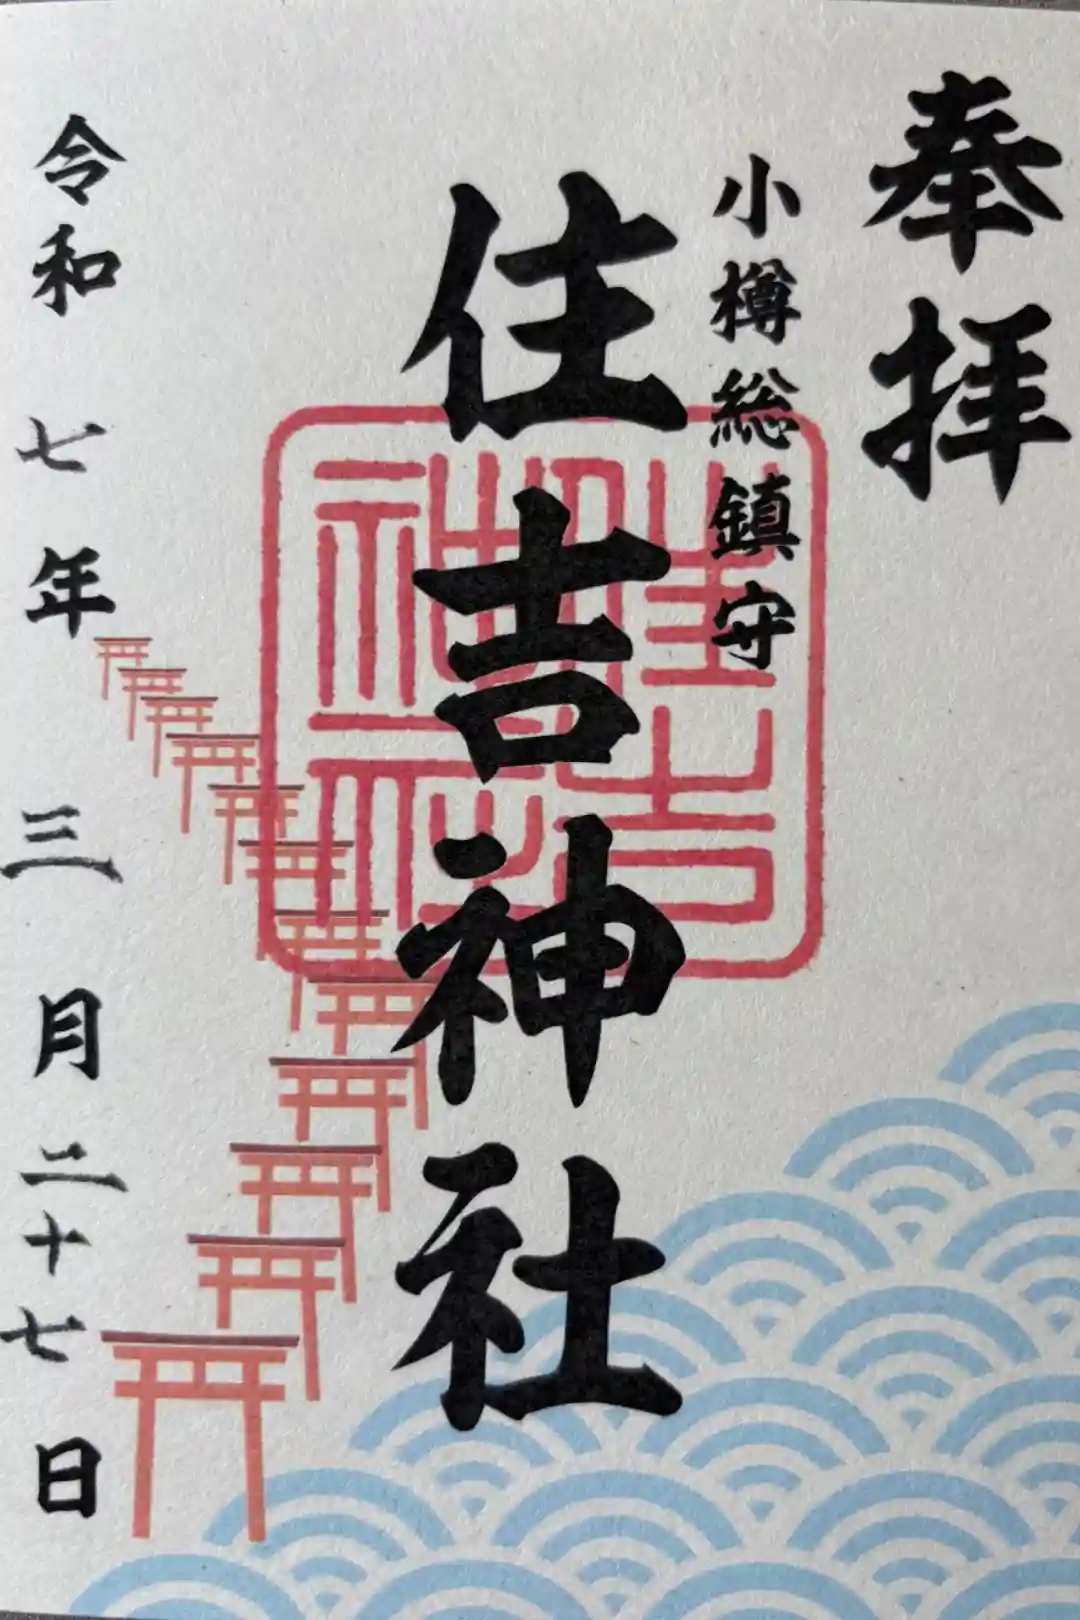 奉拝
小樽総鎮守
住吉神社
住吉神社
令和七年三月二十七日